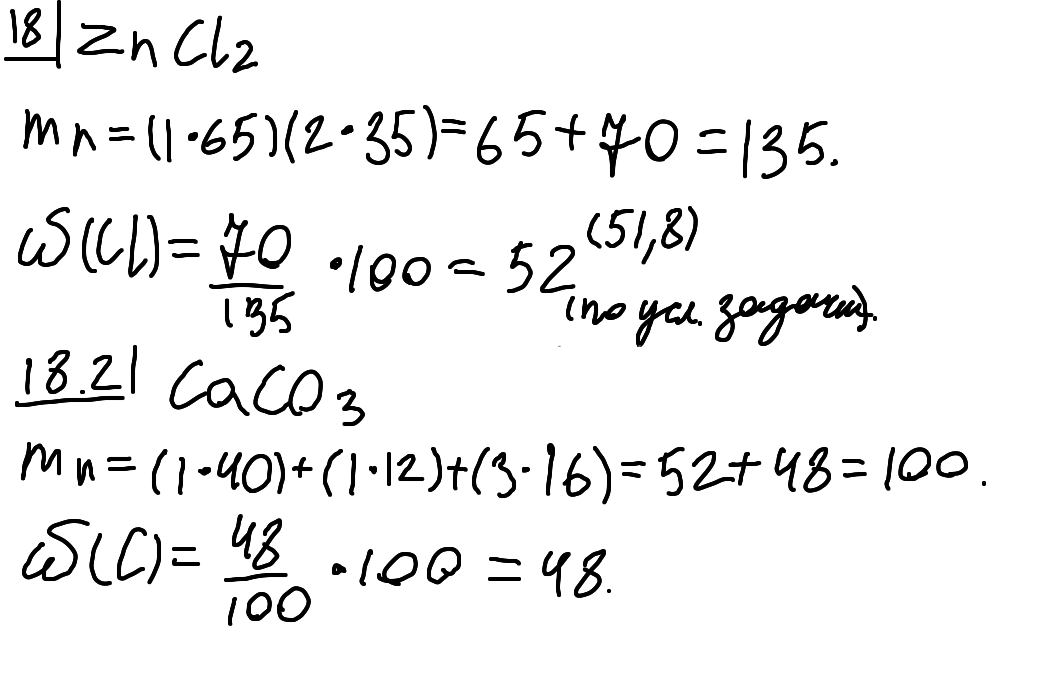 18 ZnCl₂
mn = (1·65)(2·35) = 65 + 70 = 135.
ω(Cl) = 70/135 · 100 = 52 (51,8) (по усл. задачи).
18.2 CaCO₃
mn = (1·40)+(1·12)+(3·16) = 52 + 48 = 100.
ω(C) = 48/100 · 100 = 48.